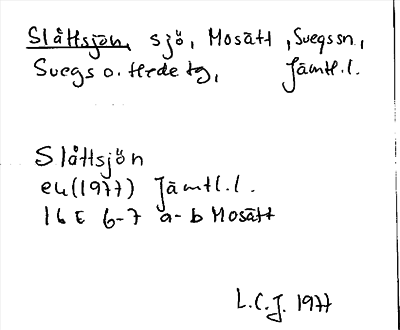 Slåttsjön, sjö, Mosätt, Svegs sn,
Svegs o. Hede tg, Jämtl.l.
Slåttsjön
ek (1977) Jämtl.l.
16 E 6-7 a-b Mosätt
L.C.J. 1977